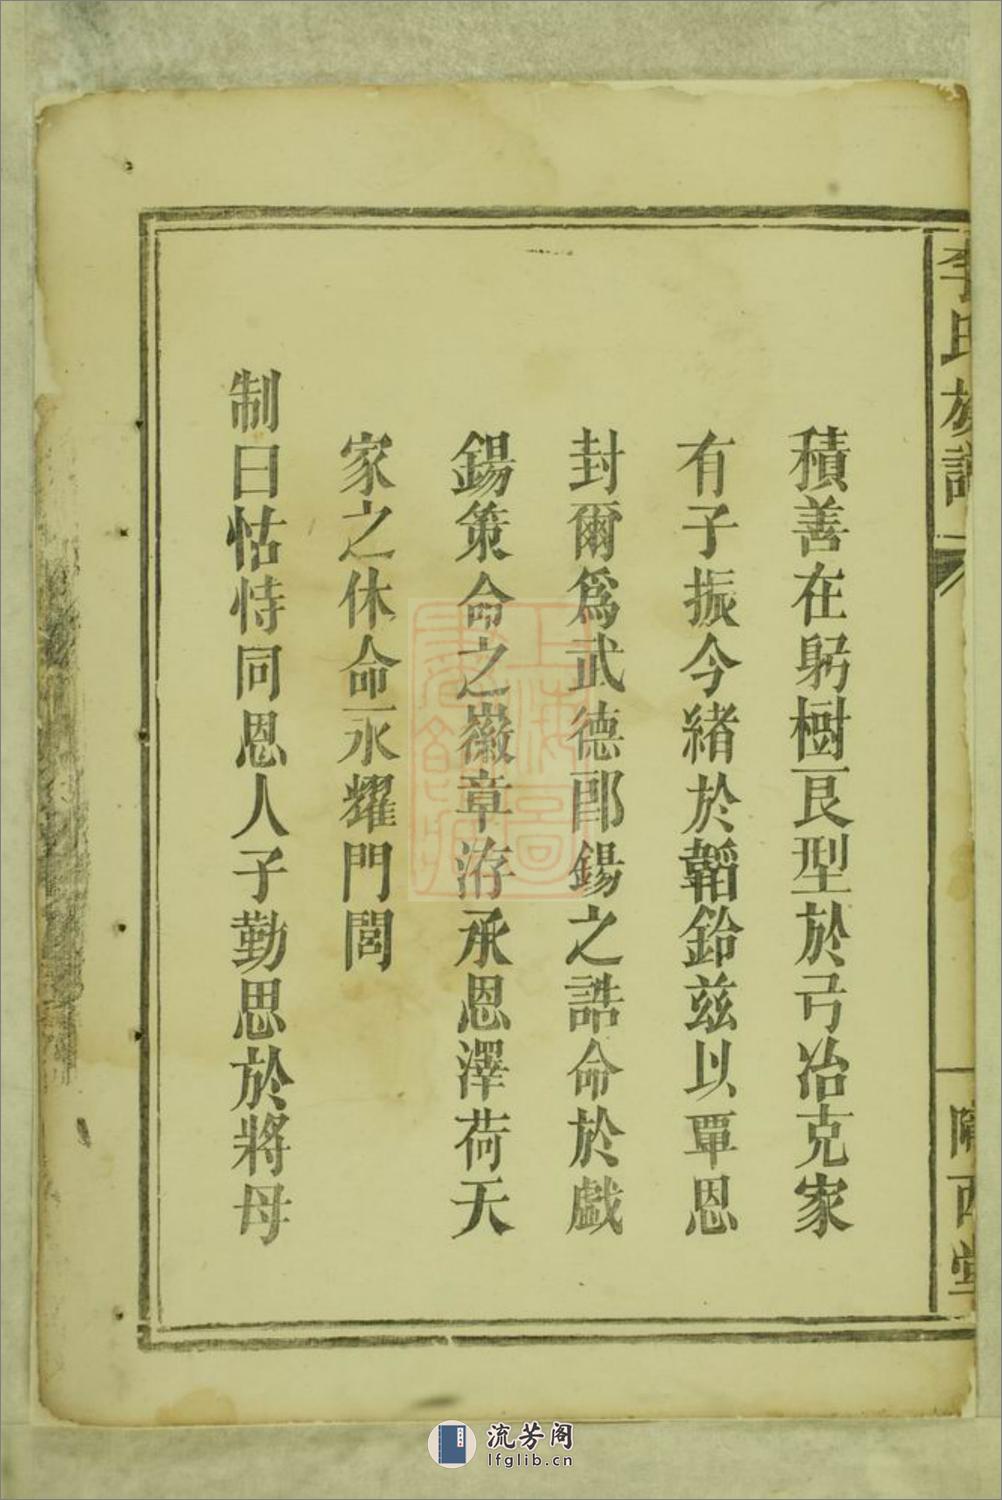 李氏族譜
隴西堂
積善在躬樹艮型於弓冶克家
有子振今緒於韜鈴兹以覃恩
封爾爲武德郎錫之誥命於戲
錫策命之徽章洊承恩澤荷天
家之休命永耀門閭
制曰怙恃同恩人子勤思於將母
上海圖
書館藏
流芳阁
lfglib.cn